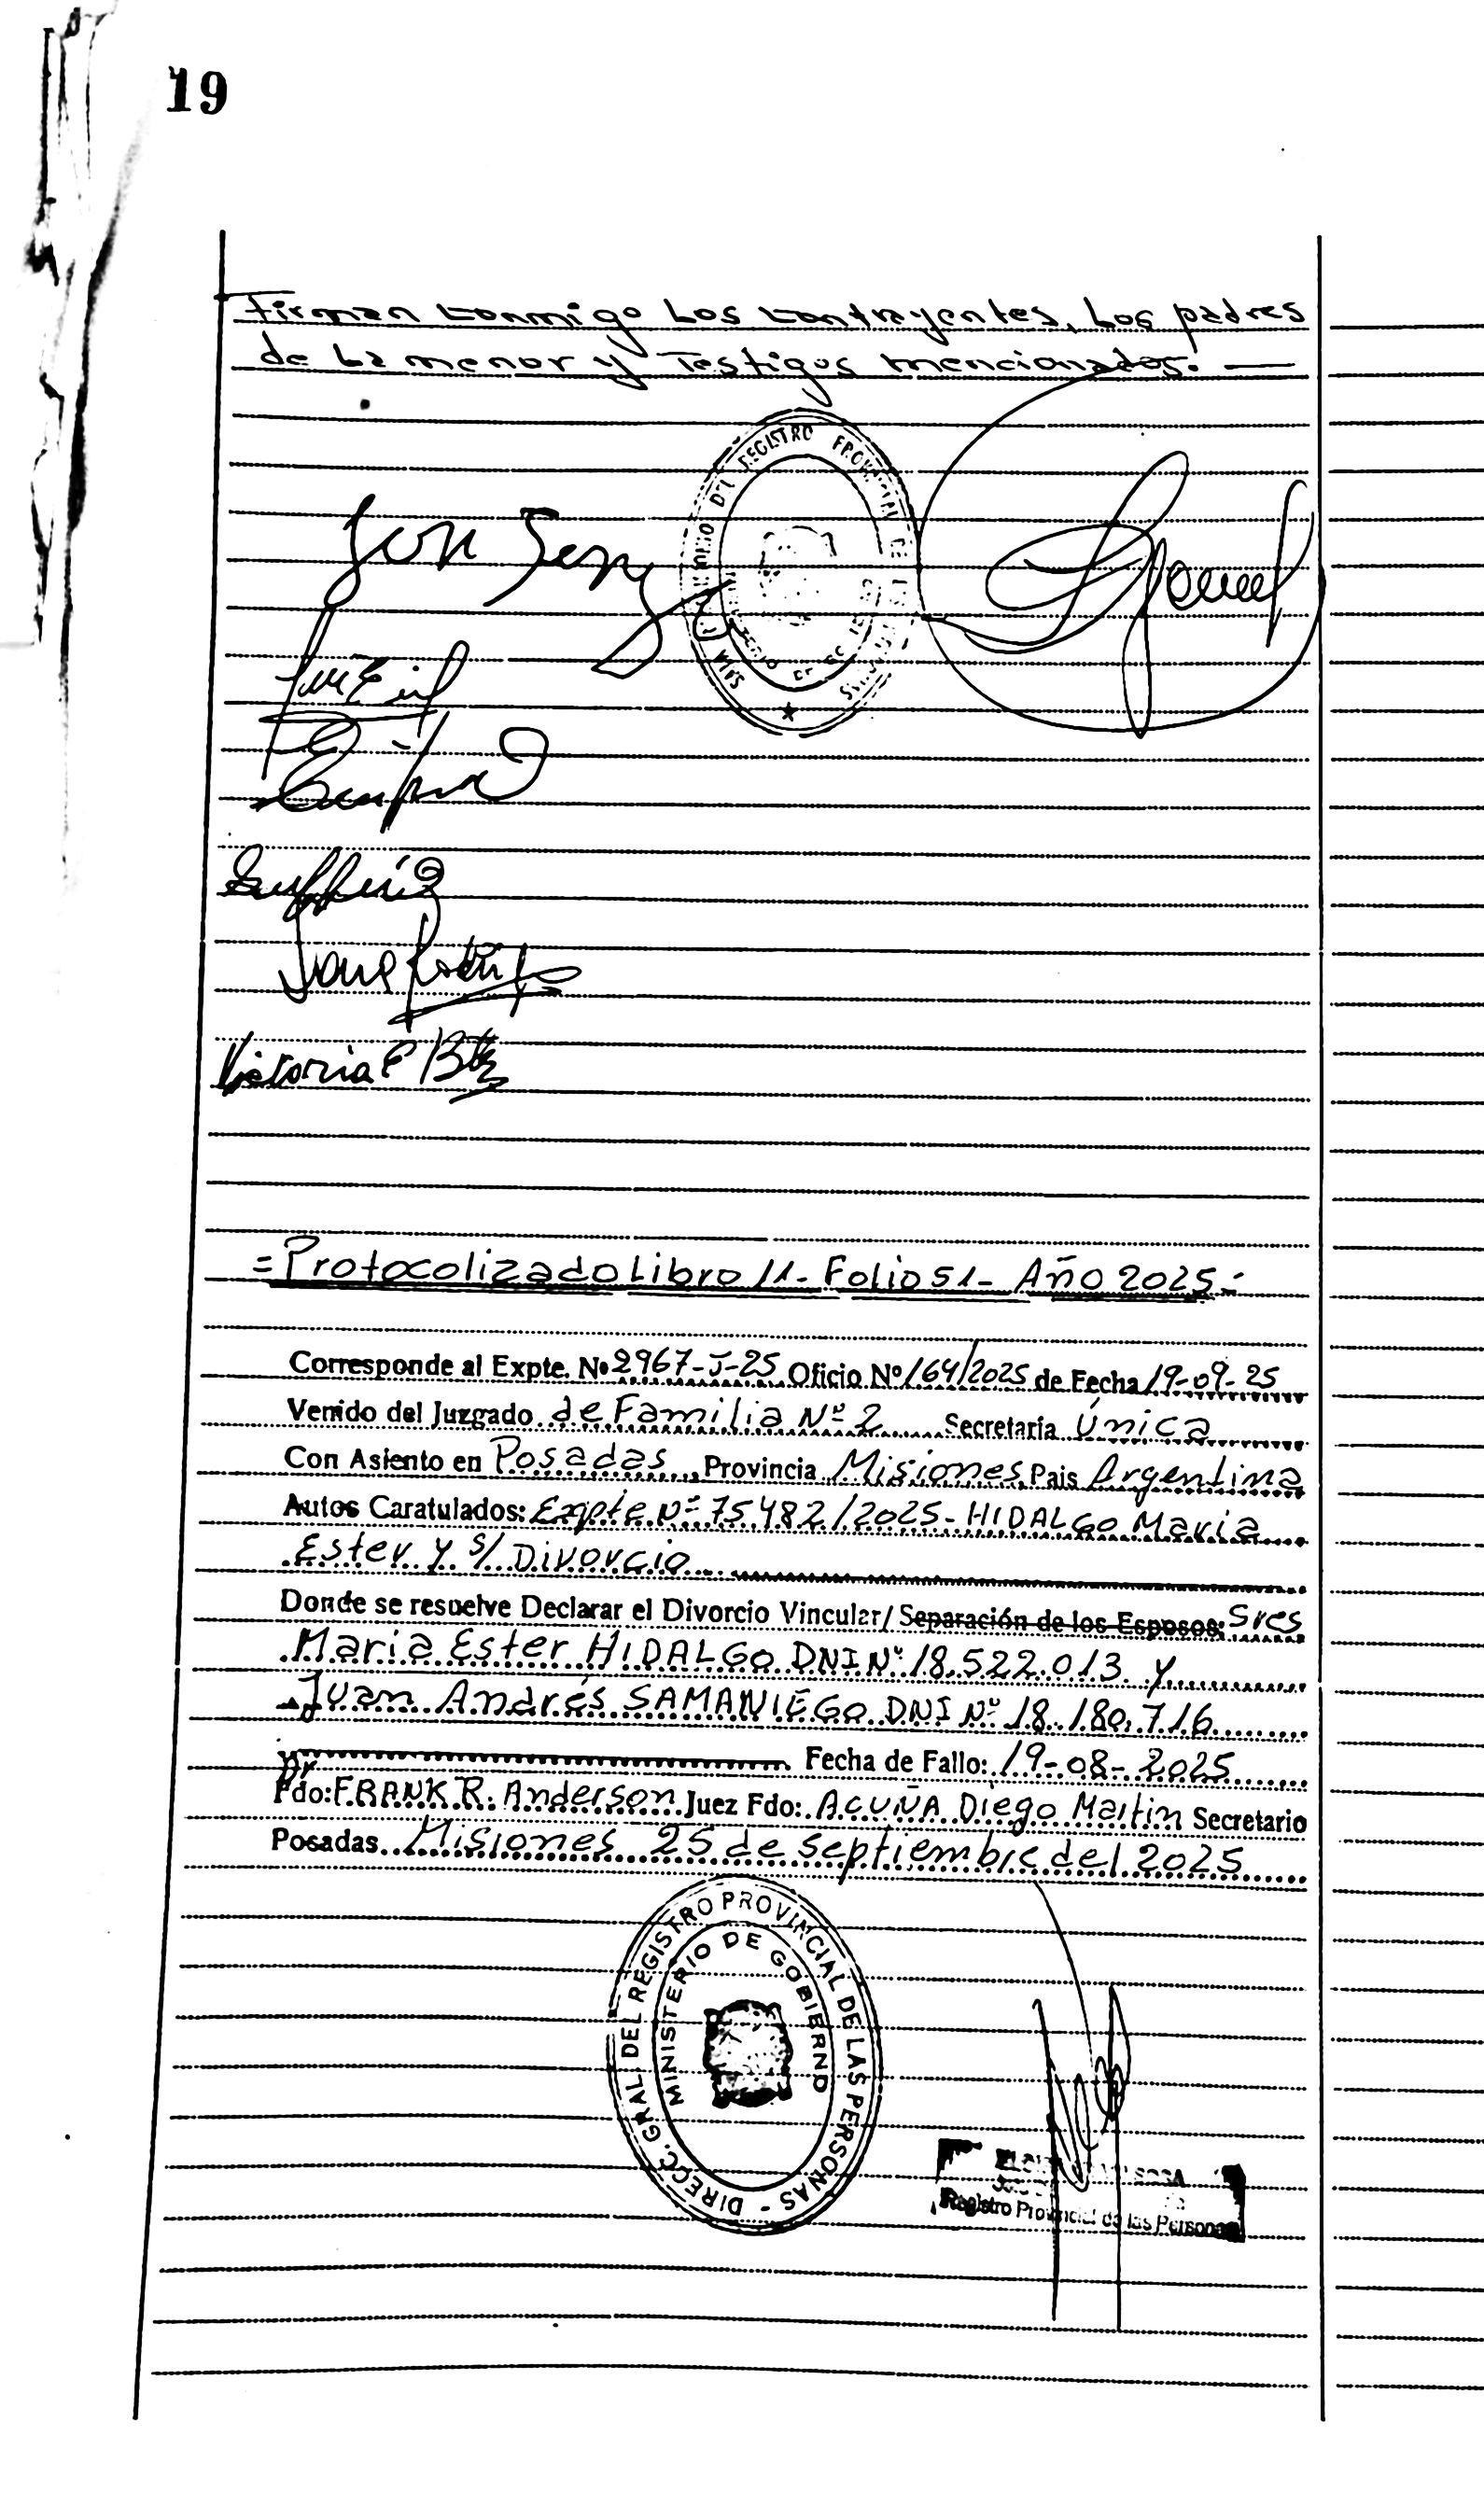 19
Firman conmigo Los contrayentes, Los padres
de La menor y Testigos mencionados. —
DEL REGISTRO
Victoria E
= Protocolizado Libro 11 - Folio 51 - Año 2025 =
Corresponde al Expte. Nº 2967-J-25 Oficio Nº 164/2025 de Fecha 19-09-25
Venido del Juzgado de Familia Nº 2 Secretaría Única
Con Asiento en Posadas Provincia Misiones País Argentina
Autos Caratulados: Expte Nº 75482/2025 - HIDALGO María
Ester y s/ Divorcio
Donde se resuelve Declarar el Divorcio Vincular/ Separación de los Esposos: Sres
María Ester HIDALGO DNI Nº 18.522.013 y
Juan Andrés SAMANIEGO DNI Nº 18.180.716
Fecha de Fallo: 19-08-2025
Dr
Fdo: FRANK R. Anderson Juez Fdo: ACUÑA Diego Martin Secretario
Posadas Misiones 25 de septiembre del 2025
DIRECC. GRAL. DEL REGISTRO PROVINCIAL DE LAS PERSONAS -
MINISTERIO DE GOBIERNO
Registro Provincial de las Personas